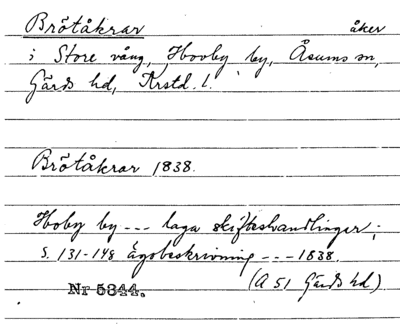 Brötåkrar åker
i Store vång, Hovby by, Åsums sn,
Gärds hd, Krstd. l.
Brötåkrar 1838.
Hoby by --- laga skifteshandlinger;
s. 131-148 ägobeskrivning --- 1838.
(A 51 Gärds hd)
Nr 5344.